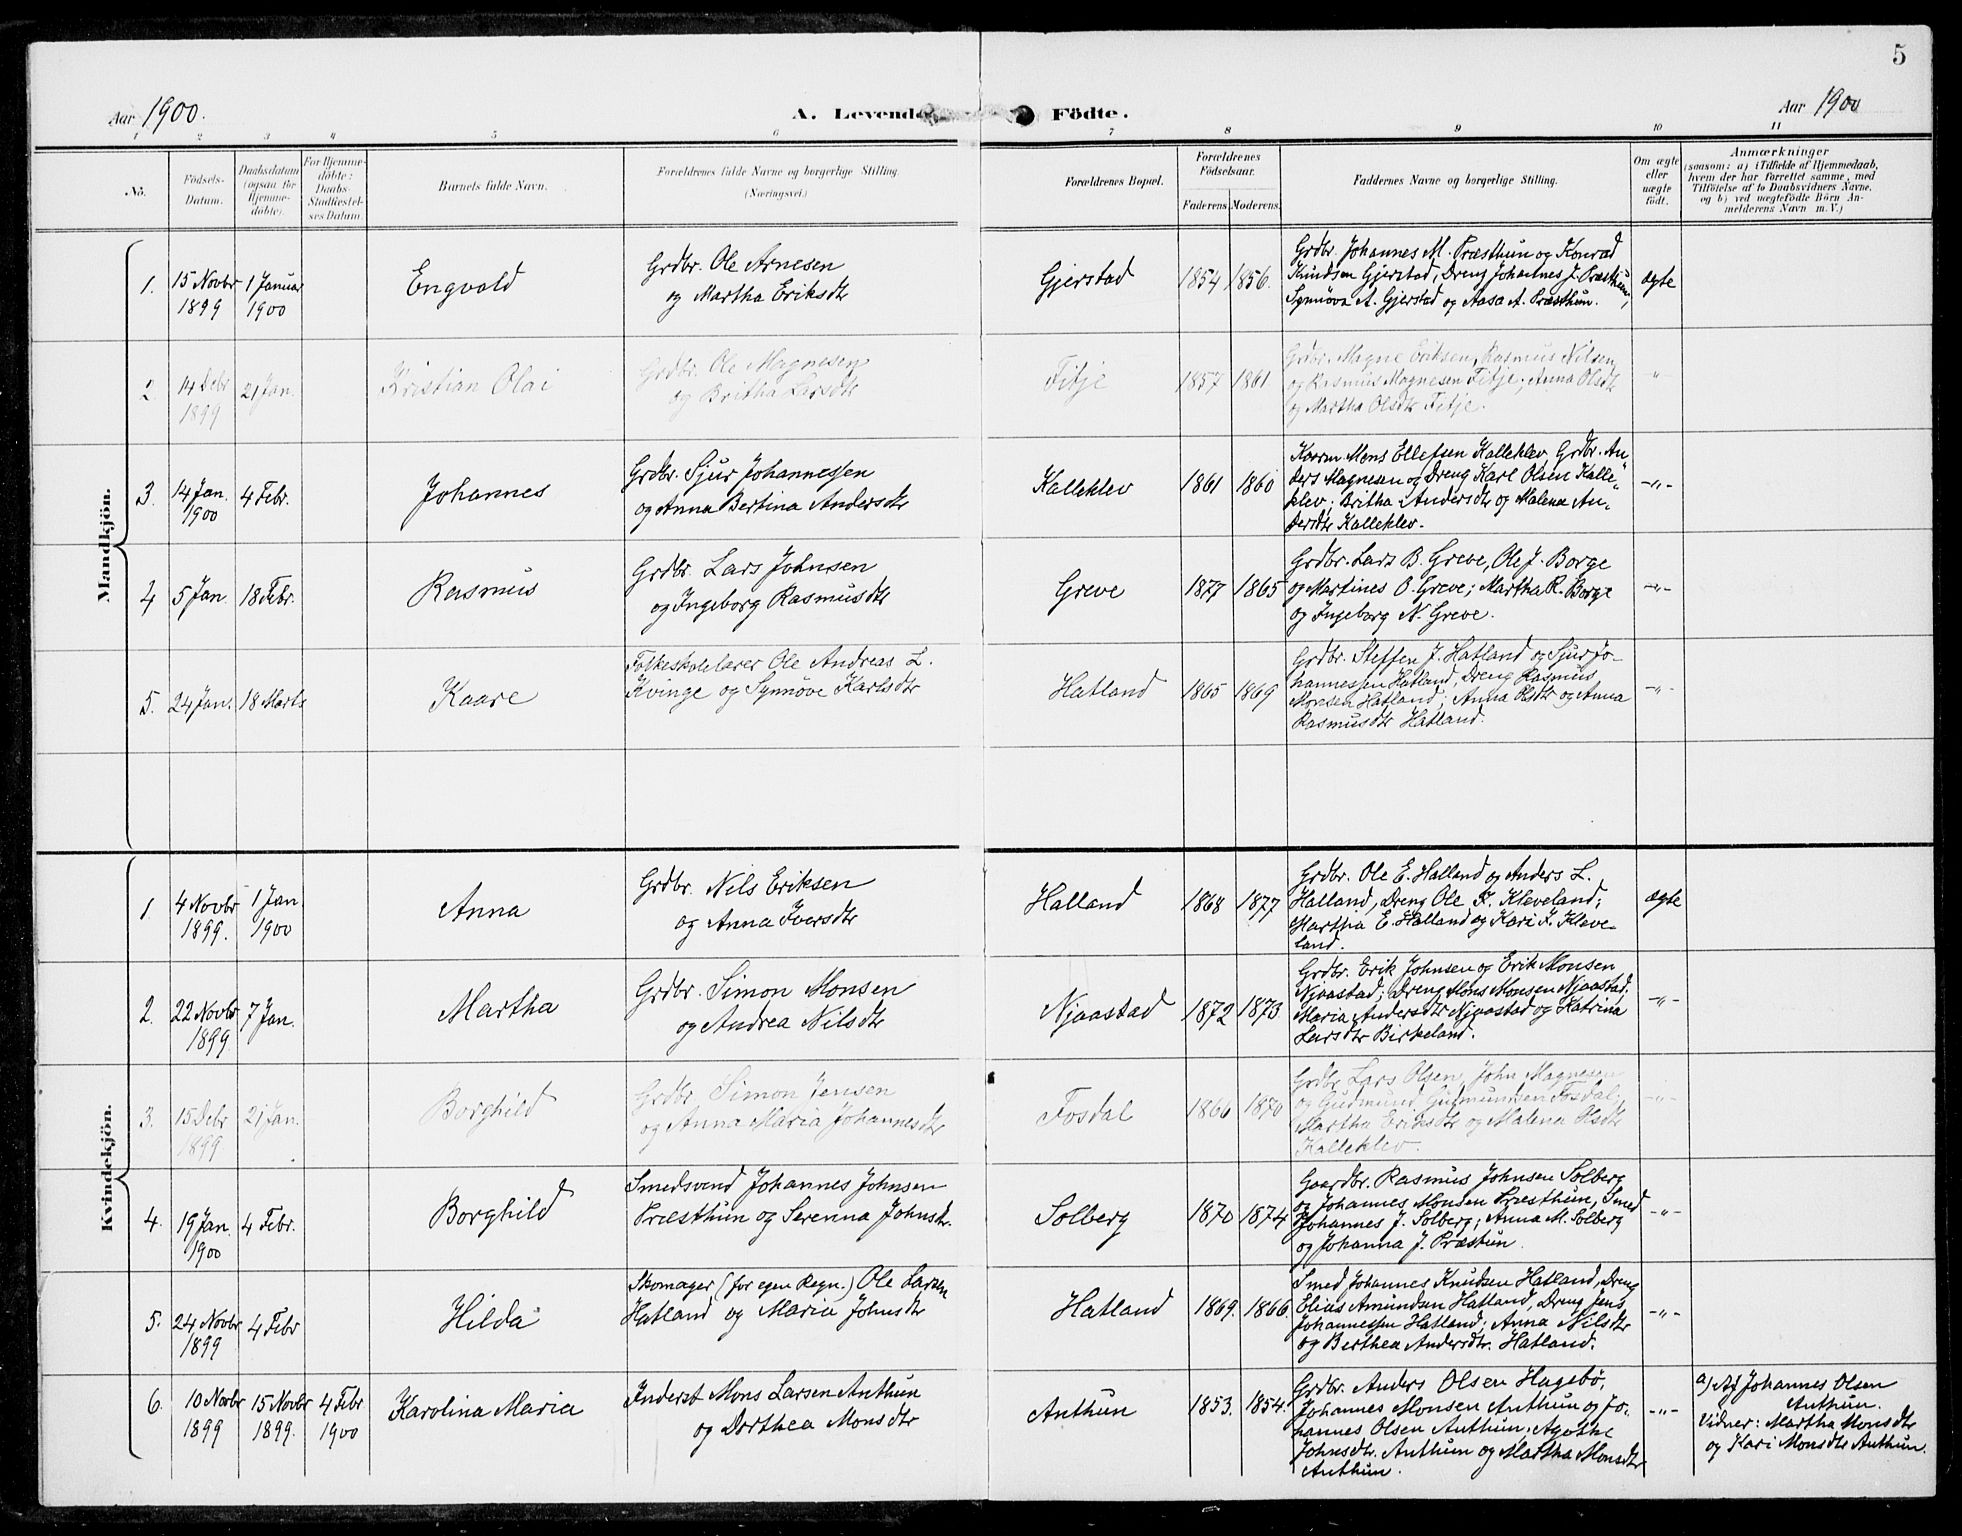 5
Aar 1900.
A. Levende Födte.
Aar 1900
1 2 3 4 5 6 7 8 9 10 11
No.
Födsels-
Datum.
Daabsdatum
(ogsaa for
Hjemme-
döbte).
For Hjemme-
döbte:
Daabs-
Stadfæstel-
ses Datum.
Barnets fulde Navn.
Forældrenes fulde Navne og borgerlige Stilling.
(Næringsvei.)
Forældrenes Bopæl.
Forældrenes
Födselsaar.
Faderens. Moderens.
Faddernes Navne og borgerlige Stilling.
Om ægte
eller
uægte
födt.
Anmærkninger
(saasom: a) i Tilfælde af Hjemmedaab,
hvem der har forrettet samme, med
Tilföielse af to Daabsvidners Navne,
og b) ved uægtefödte Börn An-
melderens Navn m. V.)
Mandkjön.
1.
15 Novbr
1899
1 Januar
1900
Engvald
Grdbr. Ole Arnesen
og Martha Eriksdtr
Gjerstad
1854
1856.
Grdbr. Johannes M. Præsthun og Konrad
Knudsen Gjerstad, Dreng Johannes J. Præsthun,
Synnöva A. Gjerstad og Aasa A. Præsthun.
ægte
2.
14 Debr
1899
21 Jan.
Kristian Olai
Grdbr. Ole Magnesen
og Britha Larsdtr
Fitje
1857
1861
Grdbr. Magne Eriksen, Rasmus Nilsen
og Rasmus Magnesen Fitje; Anna Olsdtr
og Martha Olsdtr Fitje.
"
3.
14 Jan.
1900
4 Febr.
Johannes
Grdbr. Sjur Johannessen
og Anna Bertina Andersdtr
Kalleklev
1861
1860
Kaarm. Mons Ellefsen Kalleklev, Grdbr. An-
ders Magnesen og Dreng Karl Olsen Kalle-
klev; Britha Andersdtr og Malena An-
dersdtr Kalleklev.
-"-
4
5 Jan.
18 Febr.
Rasmus
Grdbr. Lars Johnsen
og Ingeborg Rasmusdtr
Greve
1877
1865
Grdbr. Lars B. Greve, Ole J. Borge
og Martines O. Greve; Martha R. Borge
og Ingeborg N. Greve.
-"-
5.
24 Jan.
18 Marts
Kaare
Folkeskolelærer Ole Andreas L.
Kvinge og Synnöve Karlsdtr
Hatland
1865
1869
Grdbr. Steffen J. Hatland og Sjur Jo-
hannessen Hatland, Dreng Rasmus
Monsen Hatland; Anna Olsdtr og Anna
Rasmusdtr Hatland.
-"-
Kvindekjön.
1.
4 Novbr
1899.
1 Jan
1900
Anna
Grdbr. Nils Eriksen
og Anna Iversdtr
Halland
1868
1877
Grdbr. Ole E. Halland og Anders L.
Halland, Dreng Ole K. Kleveland;
Martha E. Halland og Kari I. Kleve-
land.
ægte
2.
22 Novbr
1899.
7 Jan.
Martha
Grdbr. Simon Monsen
og Andrea Nilsdtr
Njaastad
1872
1873.
Grdbr. Erik Johnsen og Erik Monsen
Njaastad; Dreng Mons Monsen Njaastad;
Maria Andersdtr Njaastad og Katrina
Larsdtr Birkeland.
-"-
3.
15 Debr
1899
21 Jan.
Borghild
Grdbr Simon Jensen
og Anna Maria Johannesdtr
Fosdal
1866
1870
Grdbr Lars Olsen, John Magnesen
og Gudmund Gudmundsen Fosdal;
Martha Eriksdtr og Malena Olsdtr
Kalleklev.
-"-
4.
19 Jan.
1900
4 Febr.
Borghild
Smedsvend Johannes Johnsen
Præsthun og Serenna Johnsdtr.
Solberg
1870
1874
Gaardbr. Rasmus Johnsen Solberg
og Johannes Monsen Præsthun, Smed
Johannes J. Solberg; Anna M. Solberg
og Johanna J. Præstun.
-"-
5.
24 Novbr
1899
4 Febr
Hilda
Skomager (for egen Regn.) Ole Larsen
Hatland og Maria Johnsdtr
Hatland
1869.
1866.
Smed Johannes Knudsen Hatland, Dreng
Elias Amundsen Hatland, Dreng Jens
Johannessen Hatland; Anna Nilsdtr
og Berthea Andersdtr. Hatland.
-"-
6.
10 Novbr
1899
15 Novbr
1899.
4 Febr
1900
Karolina Maria
Inderst Mons Larsen Anthun
og Dorthea Monsdtr
Anthun
1853.
1854.
Grdbr. Anders Olsen Hagebö,
Johannes Monsen Anthun og Jo-
hannes Olsen Anthun; Agothe
Johnsdtr. Anthun og Martha Monsdtr
Anthun.
-"-
a) Af Johannes Olsen
Anthun.
Vidner: Martha Monsdtr
og Kari Monsdtr Anthun.